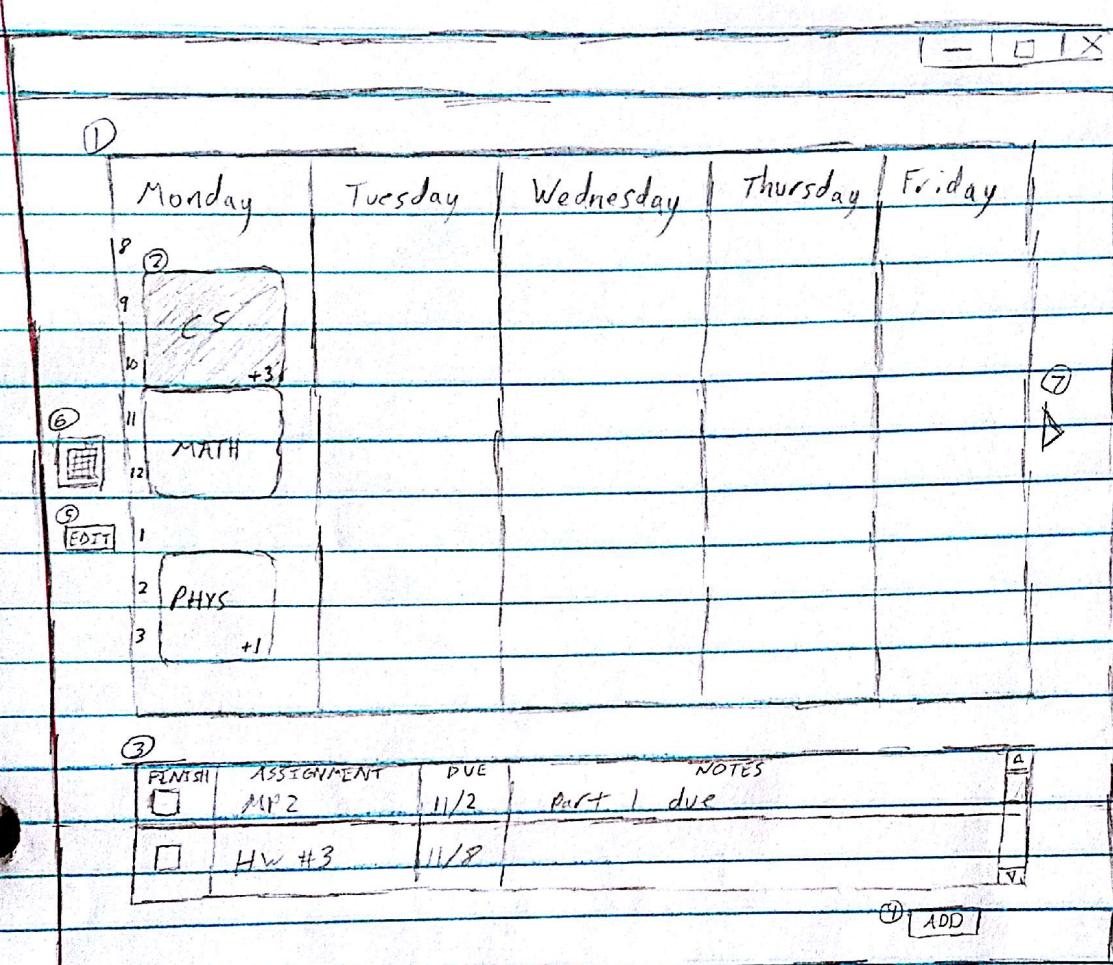 1
Monday Tuesday Wednesday Thursday Friday
8
2
9
CS
10
+3
7
6
11
MATH
12
5
1
EDIT
2
PHYS
3
+1
3
FINISH ASSIGNMENT DUE NOTES
MP2 11/2 Part 1 due
HW #3 11/8
4 ADD